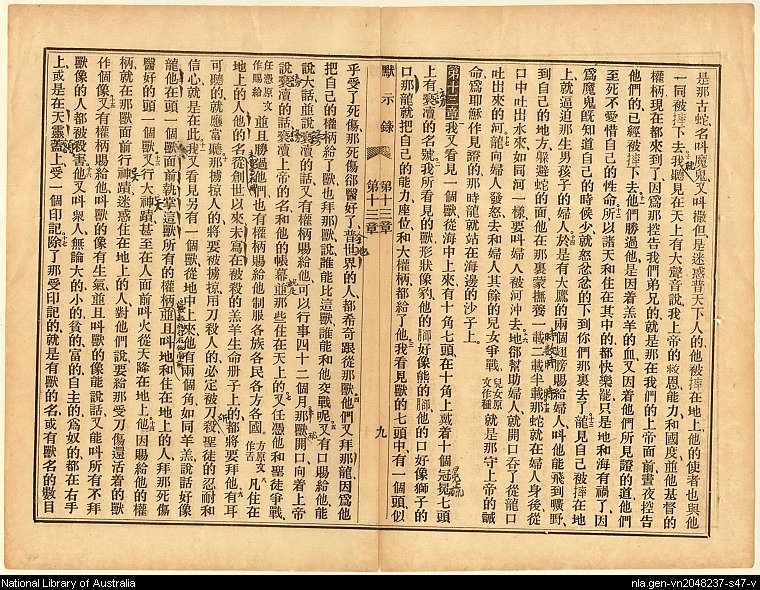 是那古蛇、名叫魔鬼、又叫撒但、是迷惑普天下人的、他被摔在地上、他的使者也與他
一同被摔下去、我聽見在天上有大聲音說、我上帝的救恩、能力、和國度、並他基督的
權柄、現在都來到了、因爲那控告我們弟兄的、就是那在我們的上帝面前晝夜控告
他們的、已經被摔下去、他們勝過他、是因着羔羊的血、又因着他們所見證的道、他們
至死不愛惜自己的性命、所以諸天和住在其中的、都快樂罷、只是地和海有禍了、因
爲魔鬼旣知道自己的時候少、就忿忿忿的下到你們那裏去了、龍見自己被摔在地
上、就逼迫那生男孩子的婦人、於是有大鷹的兩個翅膀賜給婦人、叫他能飛到曠野、
到自己的地方、躱避蛇的面、他在那裏蒙撫養一載二載半載、那蛇就在婦人身後、從
口中吐出水來、如同河一樣、要叫婦人被河沖去、地卻幫助婦人、就開口吞了從龍口
吐出來的河、龍向婦人發怒、去和婦人其餘的兒女爭戰、兒女原文作種 就是那守上帝的誡
命、爲耶穌作見證的、那時龍就站在海邊的沙子上、
第十三章 我又看見一個獸從海中上來、有十角七頭、在十角上戴着十個冠冕、七頭
上有褻瀆的名號、我所看見的獸、形狀像豹、他的脚好像熊的脚、他的口好像獅子的
口、那龍就把自己的能力、座位、和大權柄、都給了他、我看見獸的七頭中、有一個頭似
默示錄 第十三章 第十三章 九
乎受了死傷、那死傷卻醫好了、普世界的人、都希奇跟從那獸、他們又拜那龍、因爲他
把自己的權柄給了獸、也拜那獸、說、誰能比這獸、誰能和他交戰呢、又有口賜給他、能
說大話、並說褻瀆的話、又有權柄賜給他、可以行事四十二個月、那獸開口向着上帝
說褻瀆的話、褻瀆上帝的名、和他的帳幕、並那些住在天上的、又任憑他和聖徒爭戰、
任憑原文作賜給 並且勝過他們、也有權柄賜給他、制服各族各民各方各國、方原文作舌 凡住在
地上的人、他的名從創世以來未寫在被殺的羔羊生命册子上的、都將要拜他、有耳
可聽的、就應當聽、那擄掠人的、將要被擄掠、用刀殺人的、必定被刀殺、聖徒的忍耐和
信心、就是在此、我又看見另有一個獸、從地中上來、他有兩個角如同羊羔、說話好像
龍、他在頭一個獸面前、就掌這獸所有的權柄、並且叫地和住在地上的人、拜那死傷
醫好的頭一個獸、又行大神蹟、甚至在人面前、叫火從天降在地上、他因賜給他的權
柄、就在那獸面前行神蹟、迷惑住在地上的人、對他們說、要給那受刀傷還活着的獸
作個像、又有權柄賜給他、叫獸的像有生氣、並且叫獸的像能說話、又能叫所有不拜
獸像的人都被殺害、他又叫衆人、無論大的小的、貧的富的、自主的、爲奴的、都在右手
上、或是在天靈蓋上、受一個印記、除了那受印記的、就是有獸的名、或有獸名的數目
National Library of Australia
nla.gen-vn2048237-s47-v